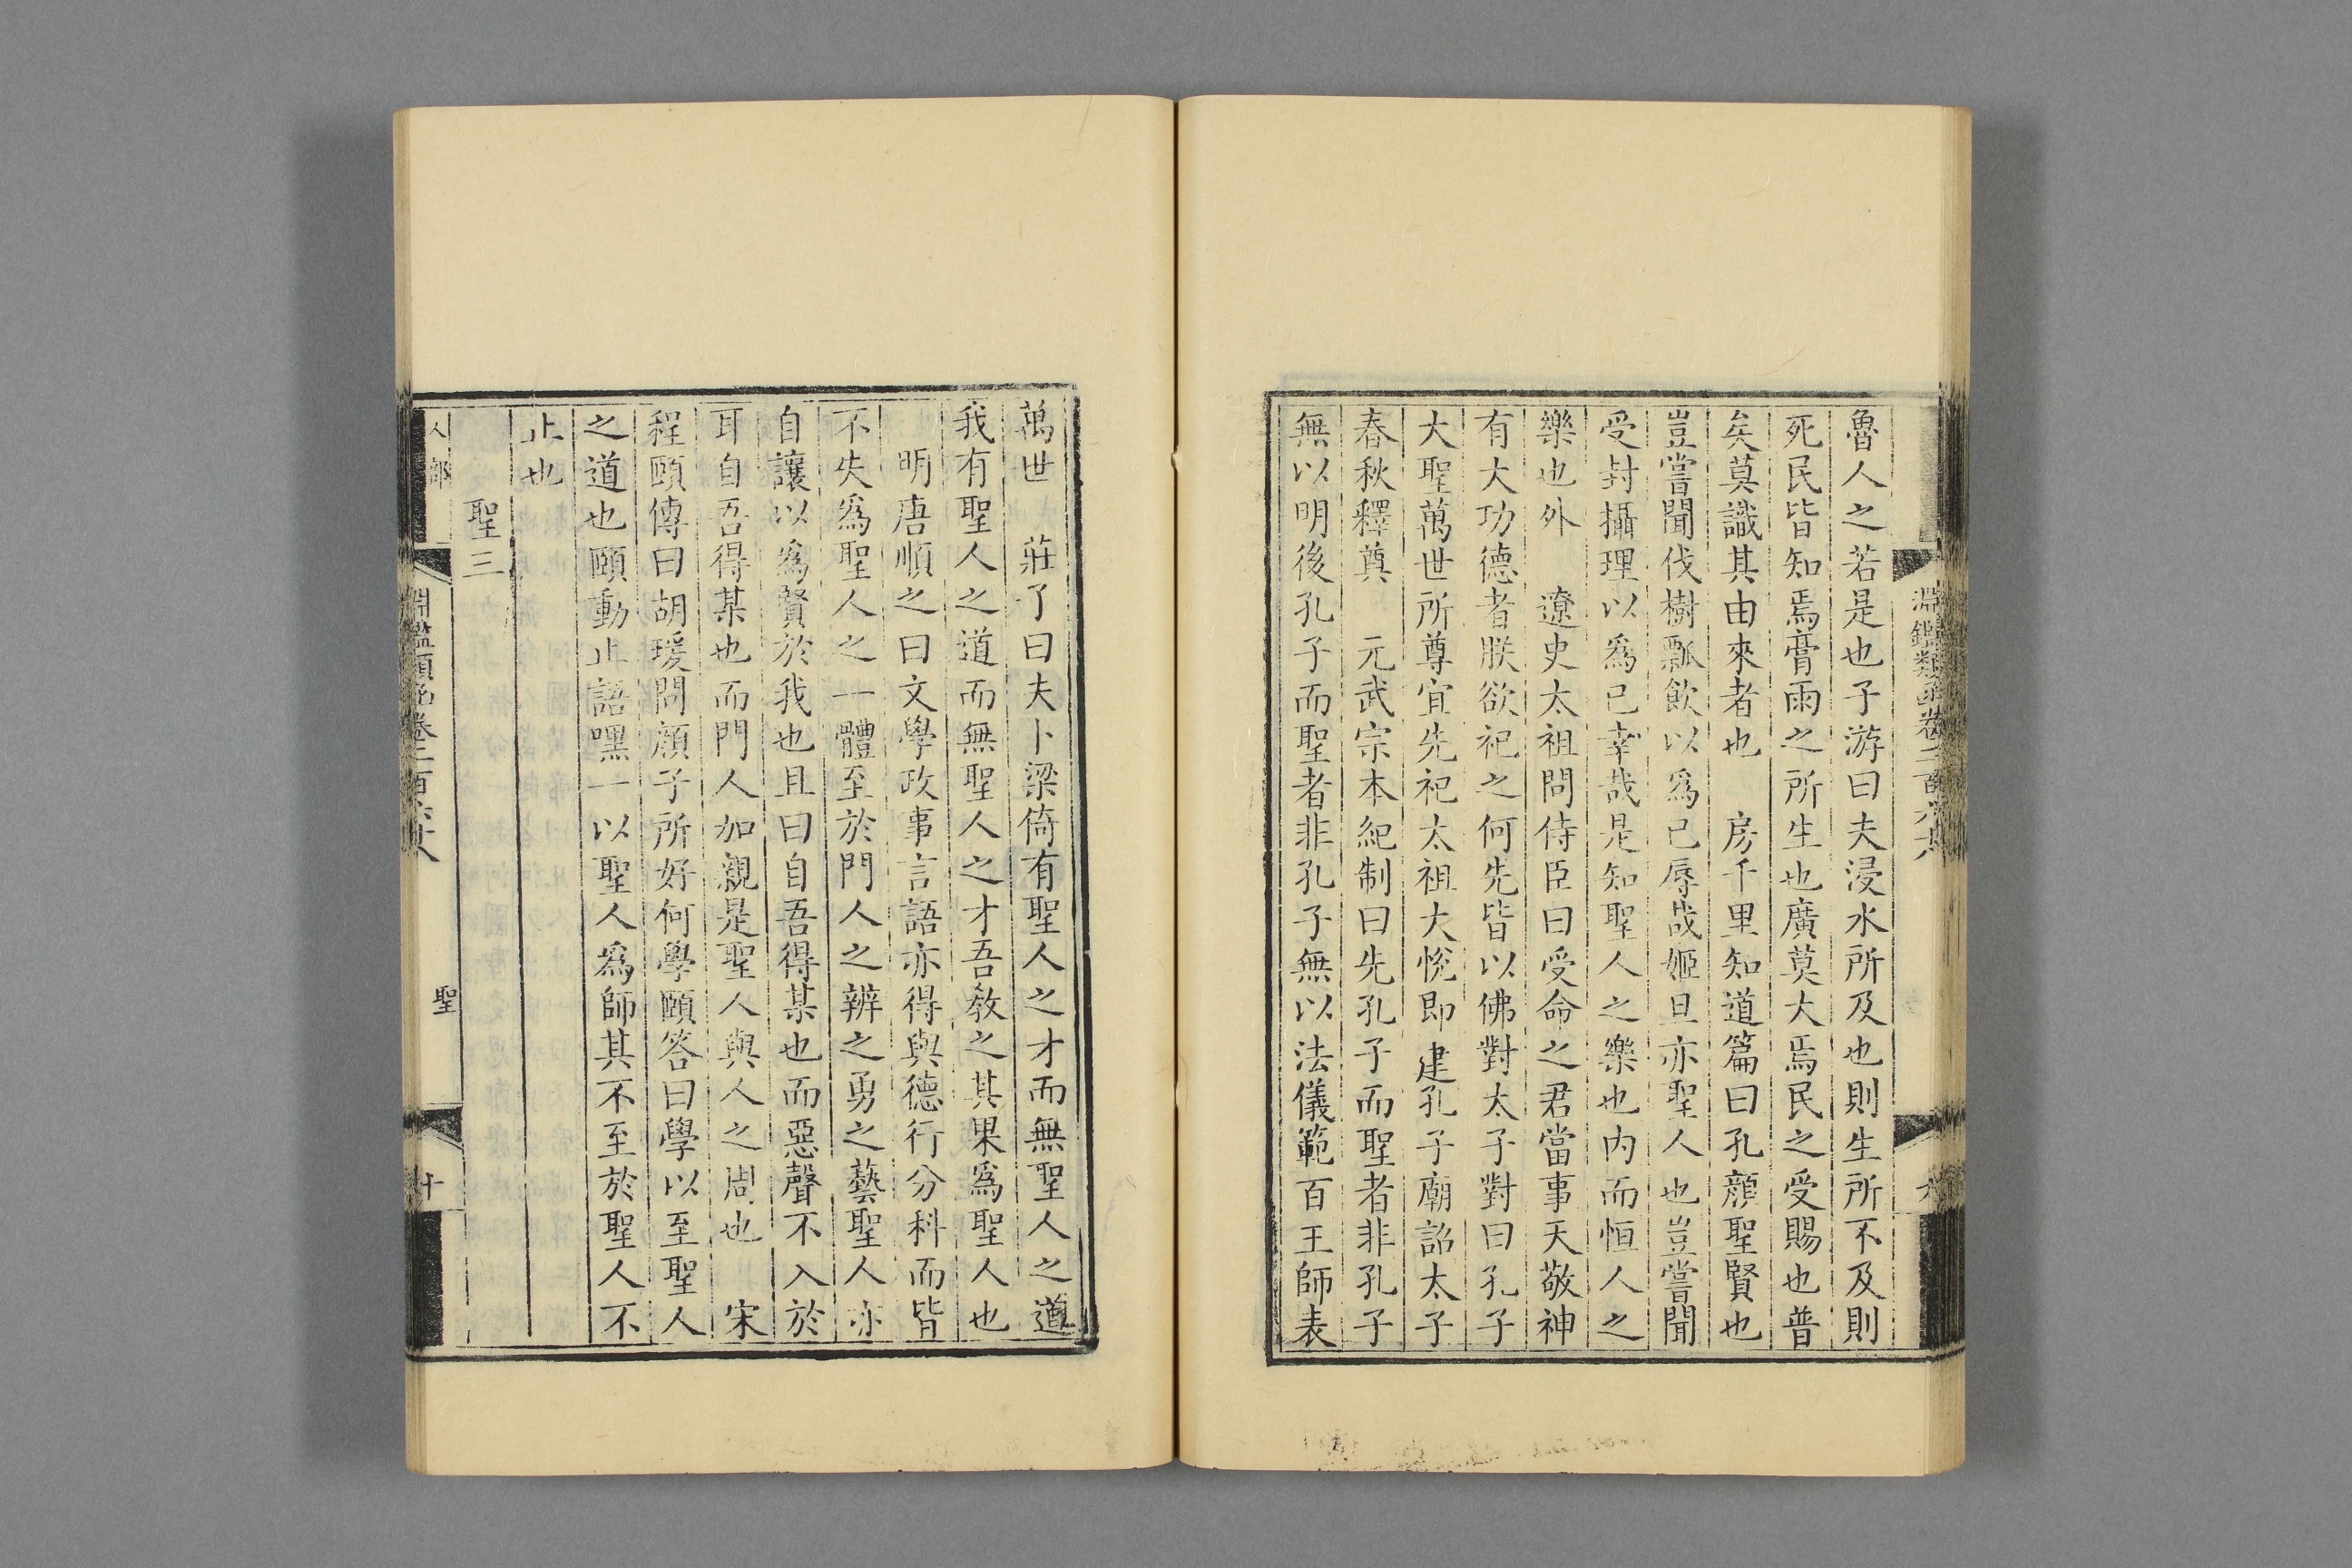 淵鑑類函卷二百六十六
九
魯人之若是也子游曰夫浸水所及也則生所不及則
死民皆知焉膏雨之所生也廣莫大焉民之受賜也普
矣莫識其由來者也　房千里知道篇曰孔顏聖賢也
豈嘗聞伐樹瓢飲以爲已辱哉姬旦亦聖人也豈嘗聞
受封攝理以爲已幸哉是知聖人之樂也内而恒人之
樂也外　遼史太祖問侍臣曰受命之君當事天敬神
有大功德者朕欲祀之何先皆以佛對太子對曰孔子
大聖萬世所尊宜先祀太祖大悅即建孔子廟詔太子
春秋釋奠　元武宗本紀制曰先孔子而聖者非孔子
無以明後孔子而聖者非孔子無以法儀範百王師表
萬世　莊子曰夫卜梁倚有聖人之才而無聖人之道
我有聖人之道而無聖人之才吾教之其果爲聖人也
明唐順之曰文學政事言語亦得與德行分科而皆
不失爲聖人之一體至於門人之辨之勇之藝聖人亦
自讓以爲賢於我也且曰自吾得某也而惡聲不入於
耳自吾得某也而門人加親是聖人與人之周也　宋
程頤傳曰胡瑗問顏子所好何學頤答曰學以至聖人
之道也頤動止語嘿一以聖人爲師其不至於聖人不
止也
聖三
人部
淵鑑類函卷二百六十六
聖
十